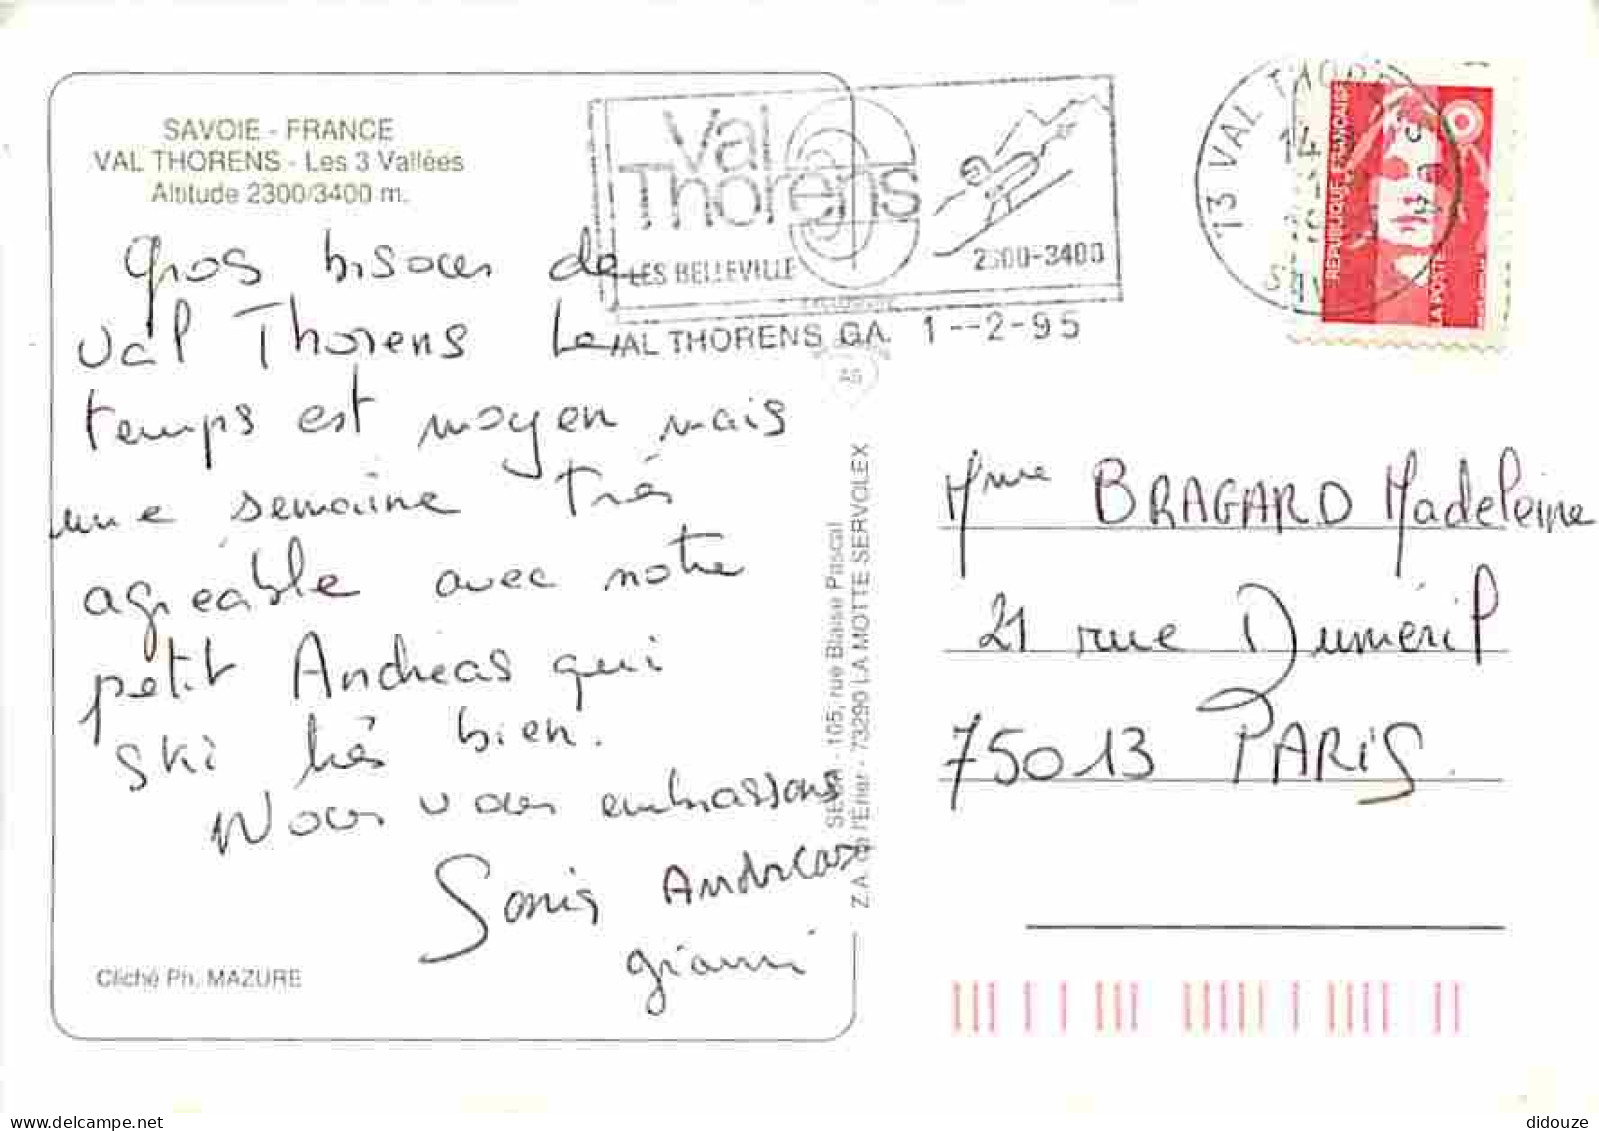 SAVOIE - FRANCE
VAL THORENS - Les 3 Vallées
Altitude 2300/3400 m.
Gros bisous de
Val Thorens Le
temps est moyen mais
une semaine très
agréable avec notre
petit Andreas qui
ski très bien.
Nous vous embrassons
Sonia Andreas
gianni
Cliché Ph. MAZURE
Val
Thorens
LES BELLEVILLE
2300-3400
VAL THORENS GA. 1--2-95
73 VAL THOR
14
SAV
REPUBLIQUE FRANÇAISE
LA POSTE
105, rue Blaise Pascal
Z.A. de l'Erier - 73290 LA MOTTE SERVOLEX
Mme BRAGARD Madeleine
21 rue Duméril
75013 PARIS
didouze